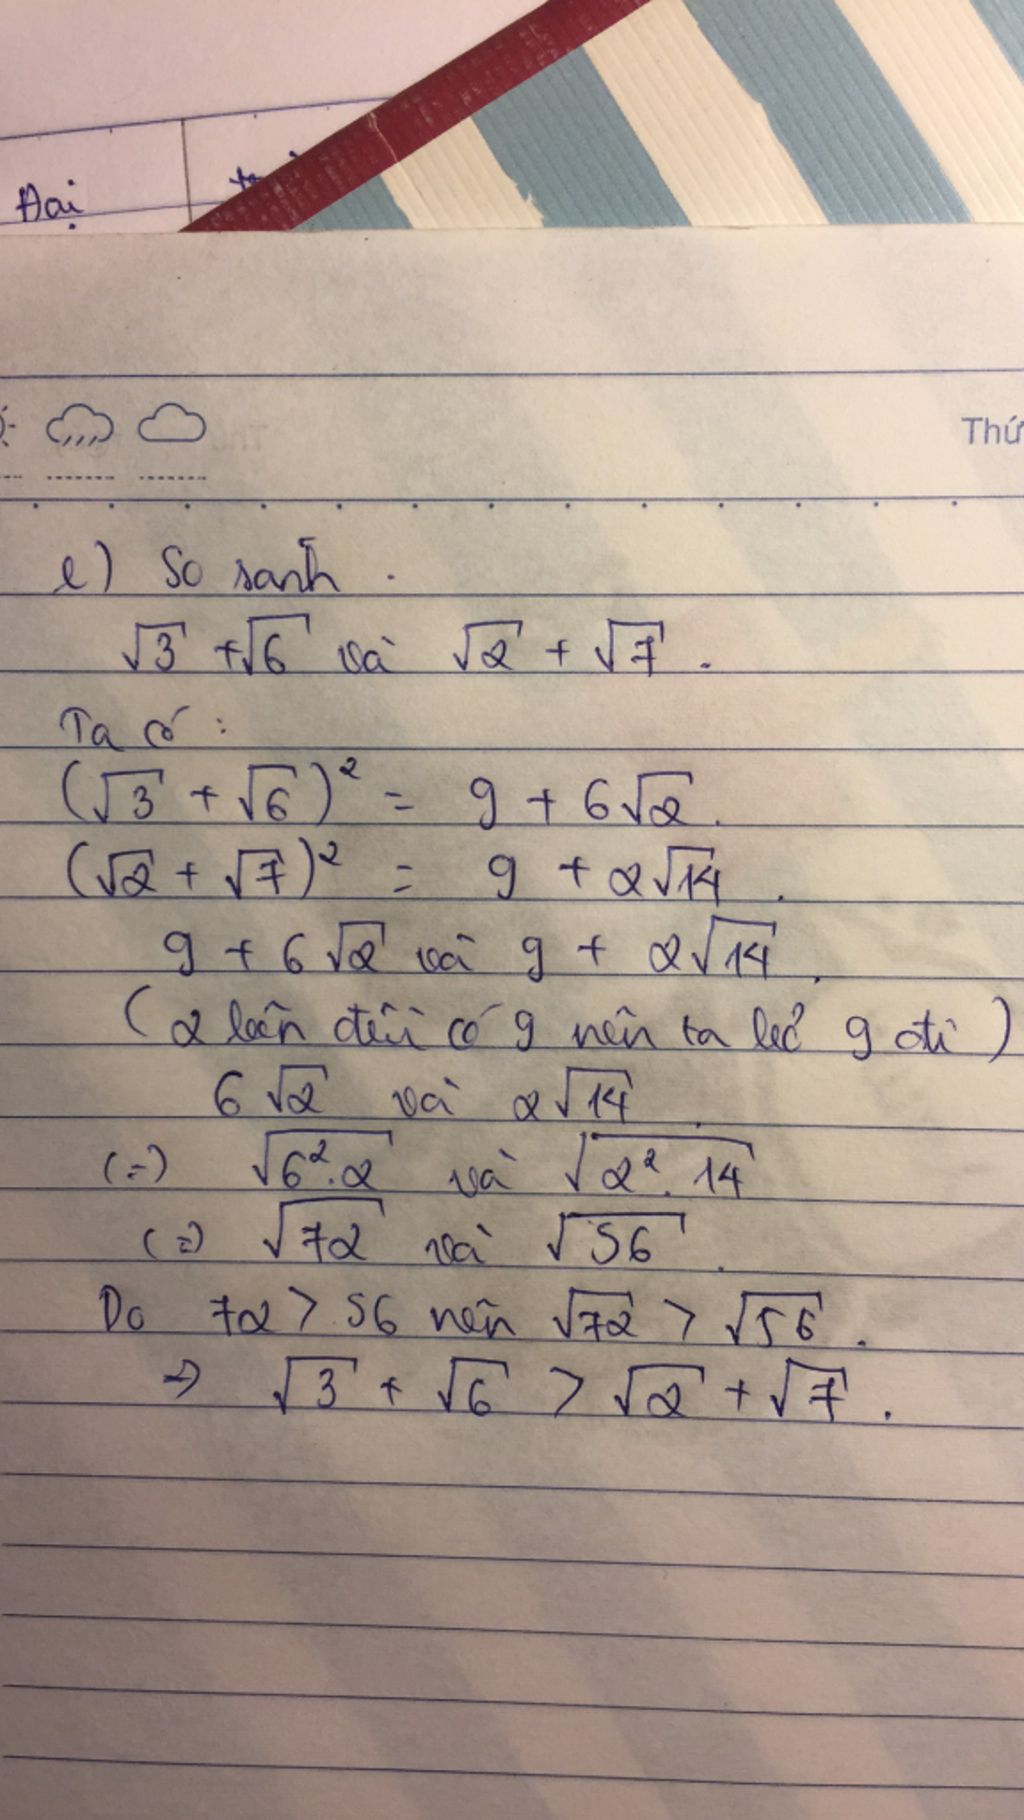 Đại
Thứ
e) So sanh.
√3 + √6 và √2 + √7.
Ta có:
(√3 + √6)² = 9 + 6√2.
(√2 + √7)² = 9 + 2√14.
9 + 6√2 và 9 + 2√14.
(2 bên đều có 9 nên ta bỏ 9 đi)
6√2 và 2√14.
(=) √6².2 và √2².14
(=) √72 và √56.
Do 72 > 56 nên √72 > √56.
=> √3 + √6 > √2 + √7.